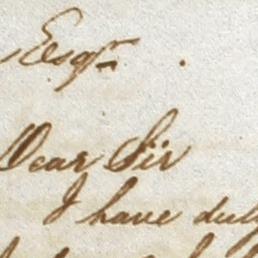 Esqr.
Dear Sir
I have duly